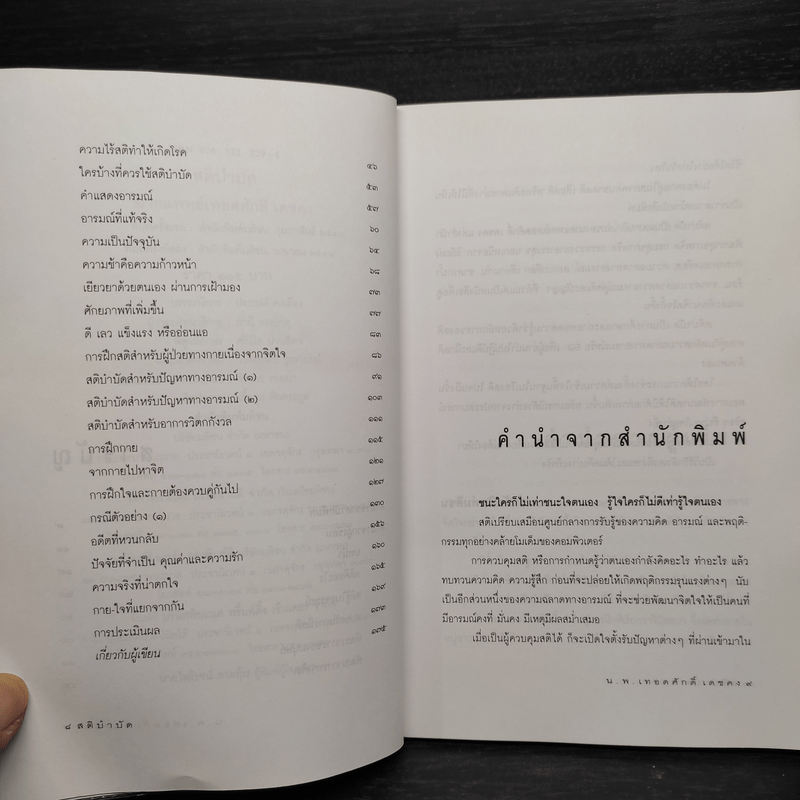 ความไร้สติทำให้เกิดโรค ๔๖
ใครบ้างที่ควรใช้สติบำบัด ๕๓
คำแสดงอารมณ์ ๕๗
อารมณ์ที่แท้จริง ๖๐
ความเป็นปัจจุบัน ๖๔
ความช้าคือความก้าวหน้า ๖๘
เยียวยาด้วยตนเอง ผ่านการเฝ้ามอง ๗๓
ศักยภาพที่เพิ่มขึ้น ๗๗
ดี เลว แข็งแรง หรืออ่อนแอ ๘๓
การฝึกสติสำหรับผู้ป่วยทางกายเนื่องจากจิตใจ ๘๖
สติบำบัดสำหรับปัญหาทางอารมณ์ (๑) ๙๑
สติบำบัดสำหรับปัญหาทางอารมณ์ (๒) ๑๐๓
สติบำบัดสำหรับอาการวิตกกังวล ๑๑๑
การฝึกกาย ๑๑๕
จากกายไปหาจิต ๑๒๑
การฝึกใจและกายต้องควบคู่กันไป ๑๒๗
กรณีตัวอย่าง (๑) ๑๓๐
อดีตที่หวนกลับ ๑๕๖
ปัจจัยที่จำเป็น คุณค่าและความรัก ๑๖๐
ความจริงที่น่าตกใจ ๑๖๕
กาย-ใจที่แยกจากกัน ๑๖๙
การประเมินผล ๑๗๓
เกี่ยวกับผู้เขียน ๑๗๕
๘ สติบำบัด
คำนำจากสำนักพิมพ์
ชนะใครก็ไม่เท่าชนะใจตนเอง รู้ใจใครก็ไม่ดีเท่ารู้ใจตนเอง
สติเปรียบเสมือนศูนย์กลางการรับรู้ของความคิด อารมณ์ และพฤติ-
กรรมทุกอย่างคล้ายโมเด็มของคอมพิวเตอร์
การควบคุมสติ หรือการกำหนดรู้ว่าตนเองกำลังคิดอะไร ทำอะไร แล้ว
ทบทวนความคิด ความรู้สึก ก่อนที่จะปล่อยให้เกิดพฤติกรรมรุนแรงต่างๆ นับ
เป็นอีกส่วนหนึ่งของความฉลาดทางอารมณ์ ที่จะช่วยพัฒนาจิตใจให้เป็นคนที่
มีอารมณ์คงที่ มั่นคง มีเหตุมีผลสม่ำเสมอ
เมื่อเป็นผู้ควบคุมสติได้ ก็จะเปิดใจตั้งรับปัญหาต่างๆ ที่ผ่านเข้ามาใน
น.พ.เทอดศักดิ์ เดชคง ๙